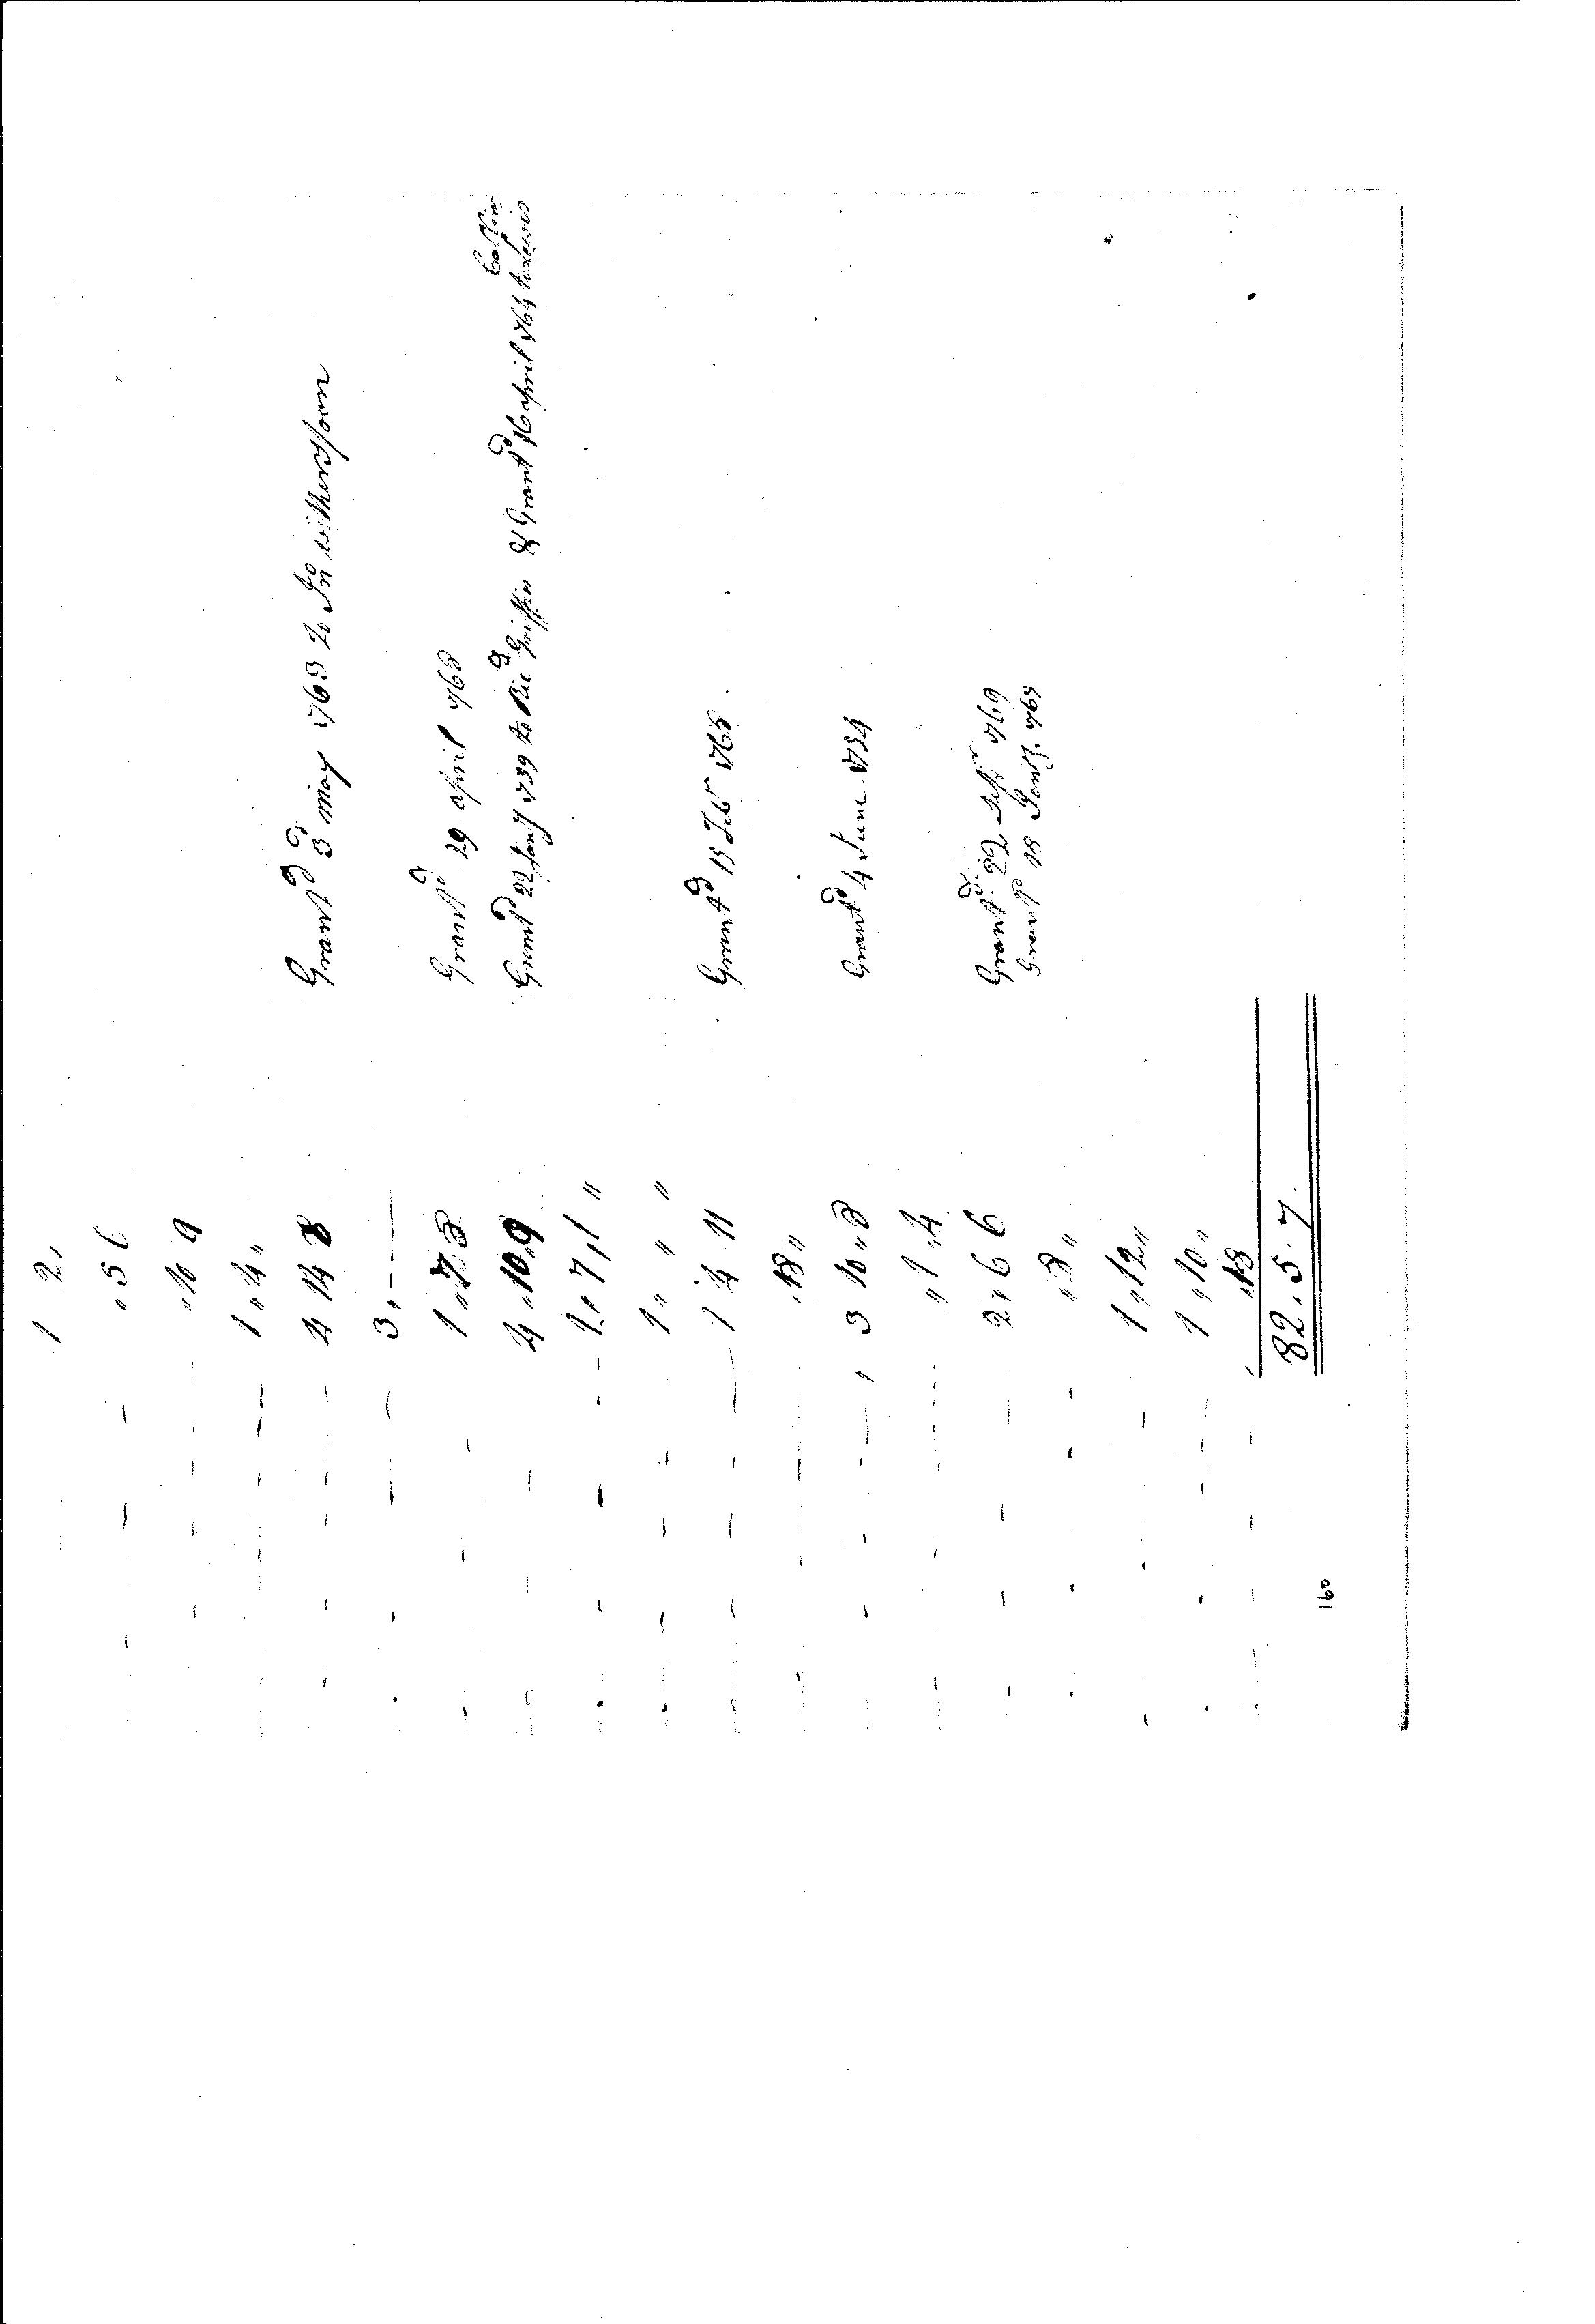 1 2 ,
" 5 6
" 10 9
1 " 4 "
4 14 8 Grantd 3d may 1763 to Jno witherspoon
3 , - - -
1 " 7 8 Grantd 29 april 1768
4 " 10 " 9 Grantd 22 Jany 1739 to Ricd Griffin & Grantd 16 april 1764 to Lewis Collins
1 " 7 " 1 "
1 " " "
1 4 11 Grantd 15 Feb 1765
" 13 "
3 10 " 8 Grantd 4 June 1754
" 1 " 4
2 " 6 6 Grantd 22d Sepr 1769
Grantd 18 Jany. 1765
" 8 "
1 " 12 "
1 " 10 "
" 13
82 . 5 . 7
160